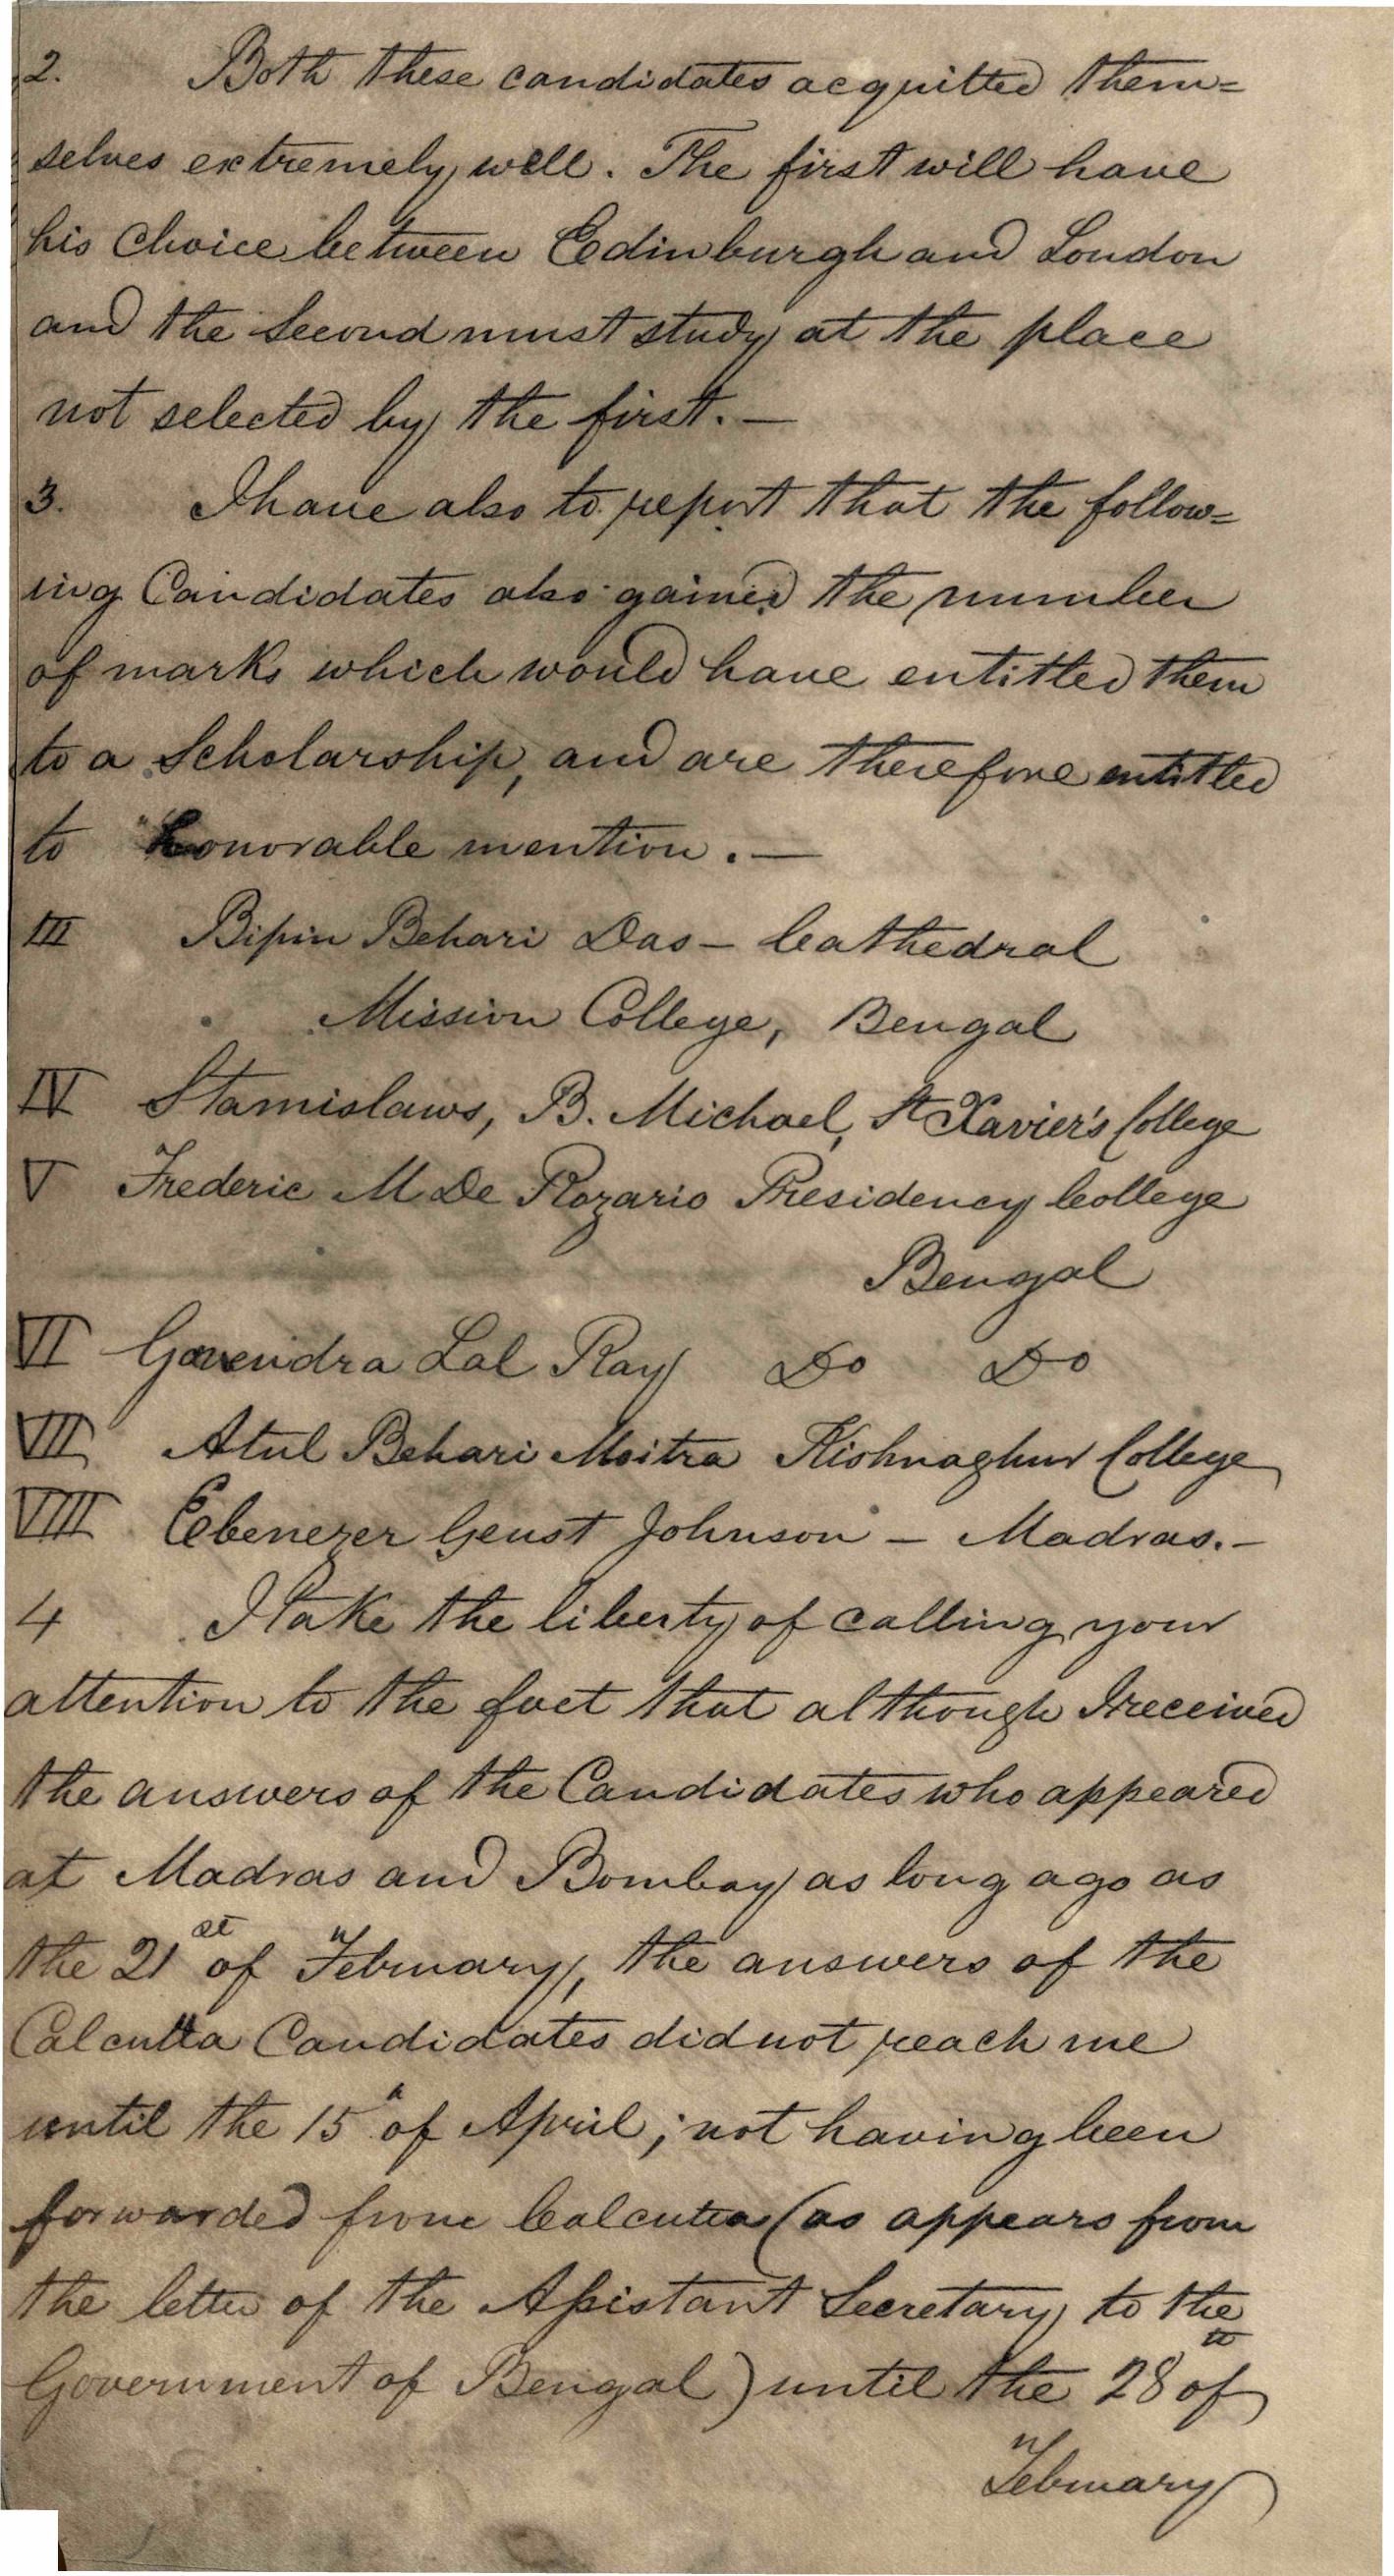 2. Both these candidates acquitted them=
selves extremely well. The first will have
his Choice between Edinburgh and London
and the Second must study at the place
not selected by the first. —
3. I have also to report that the follow=
ing Candidates also gained the number
of marks which would have entitled them
to a Scholarship, and are therefore entitled
to honorable mention. —
III Bipin Behari Das — Cathedral
Mission College, Bengal
IV Stamislaws, B. Michael, St Xavier's College
V Frederic M De Rozario Presidency College
Bengal
VI Lal Ray Do Do
VII Atul Behari Moitra Kishnaghur College
VIII Ebenezer Geust Johnson — Madras. —
4 I take the liberty of calling your
attention to the fact that although I received
the answers of the Candidates who appeared
at Madras and Bombay as long ago as
the 21st of February, the answers of the
Calcutta Candidates did not reach me
until the 15th of April; not having been
forwarded from Calcutta (as appears from
the letter of the Assistant Secretary to the
Government of Bengal) until the 28th of
February